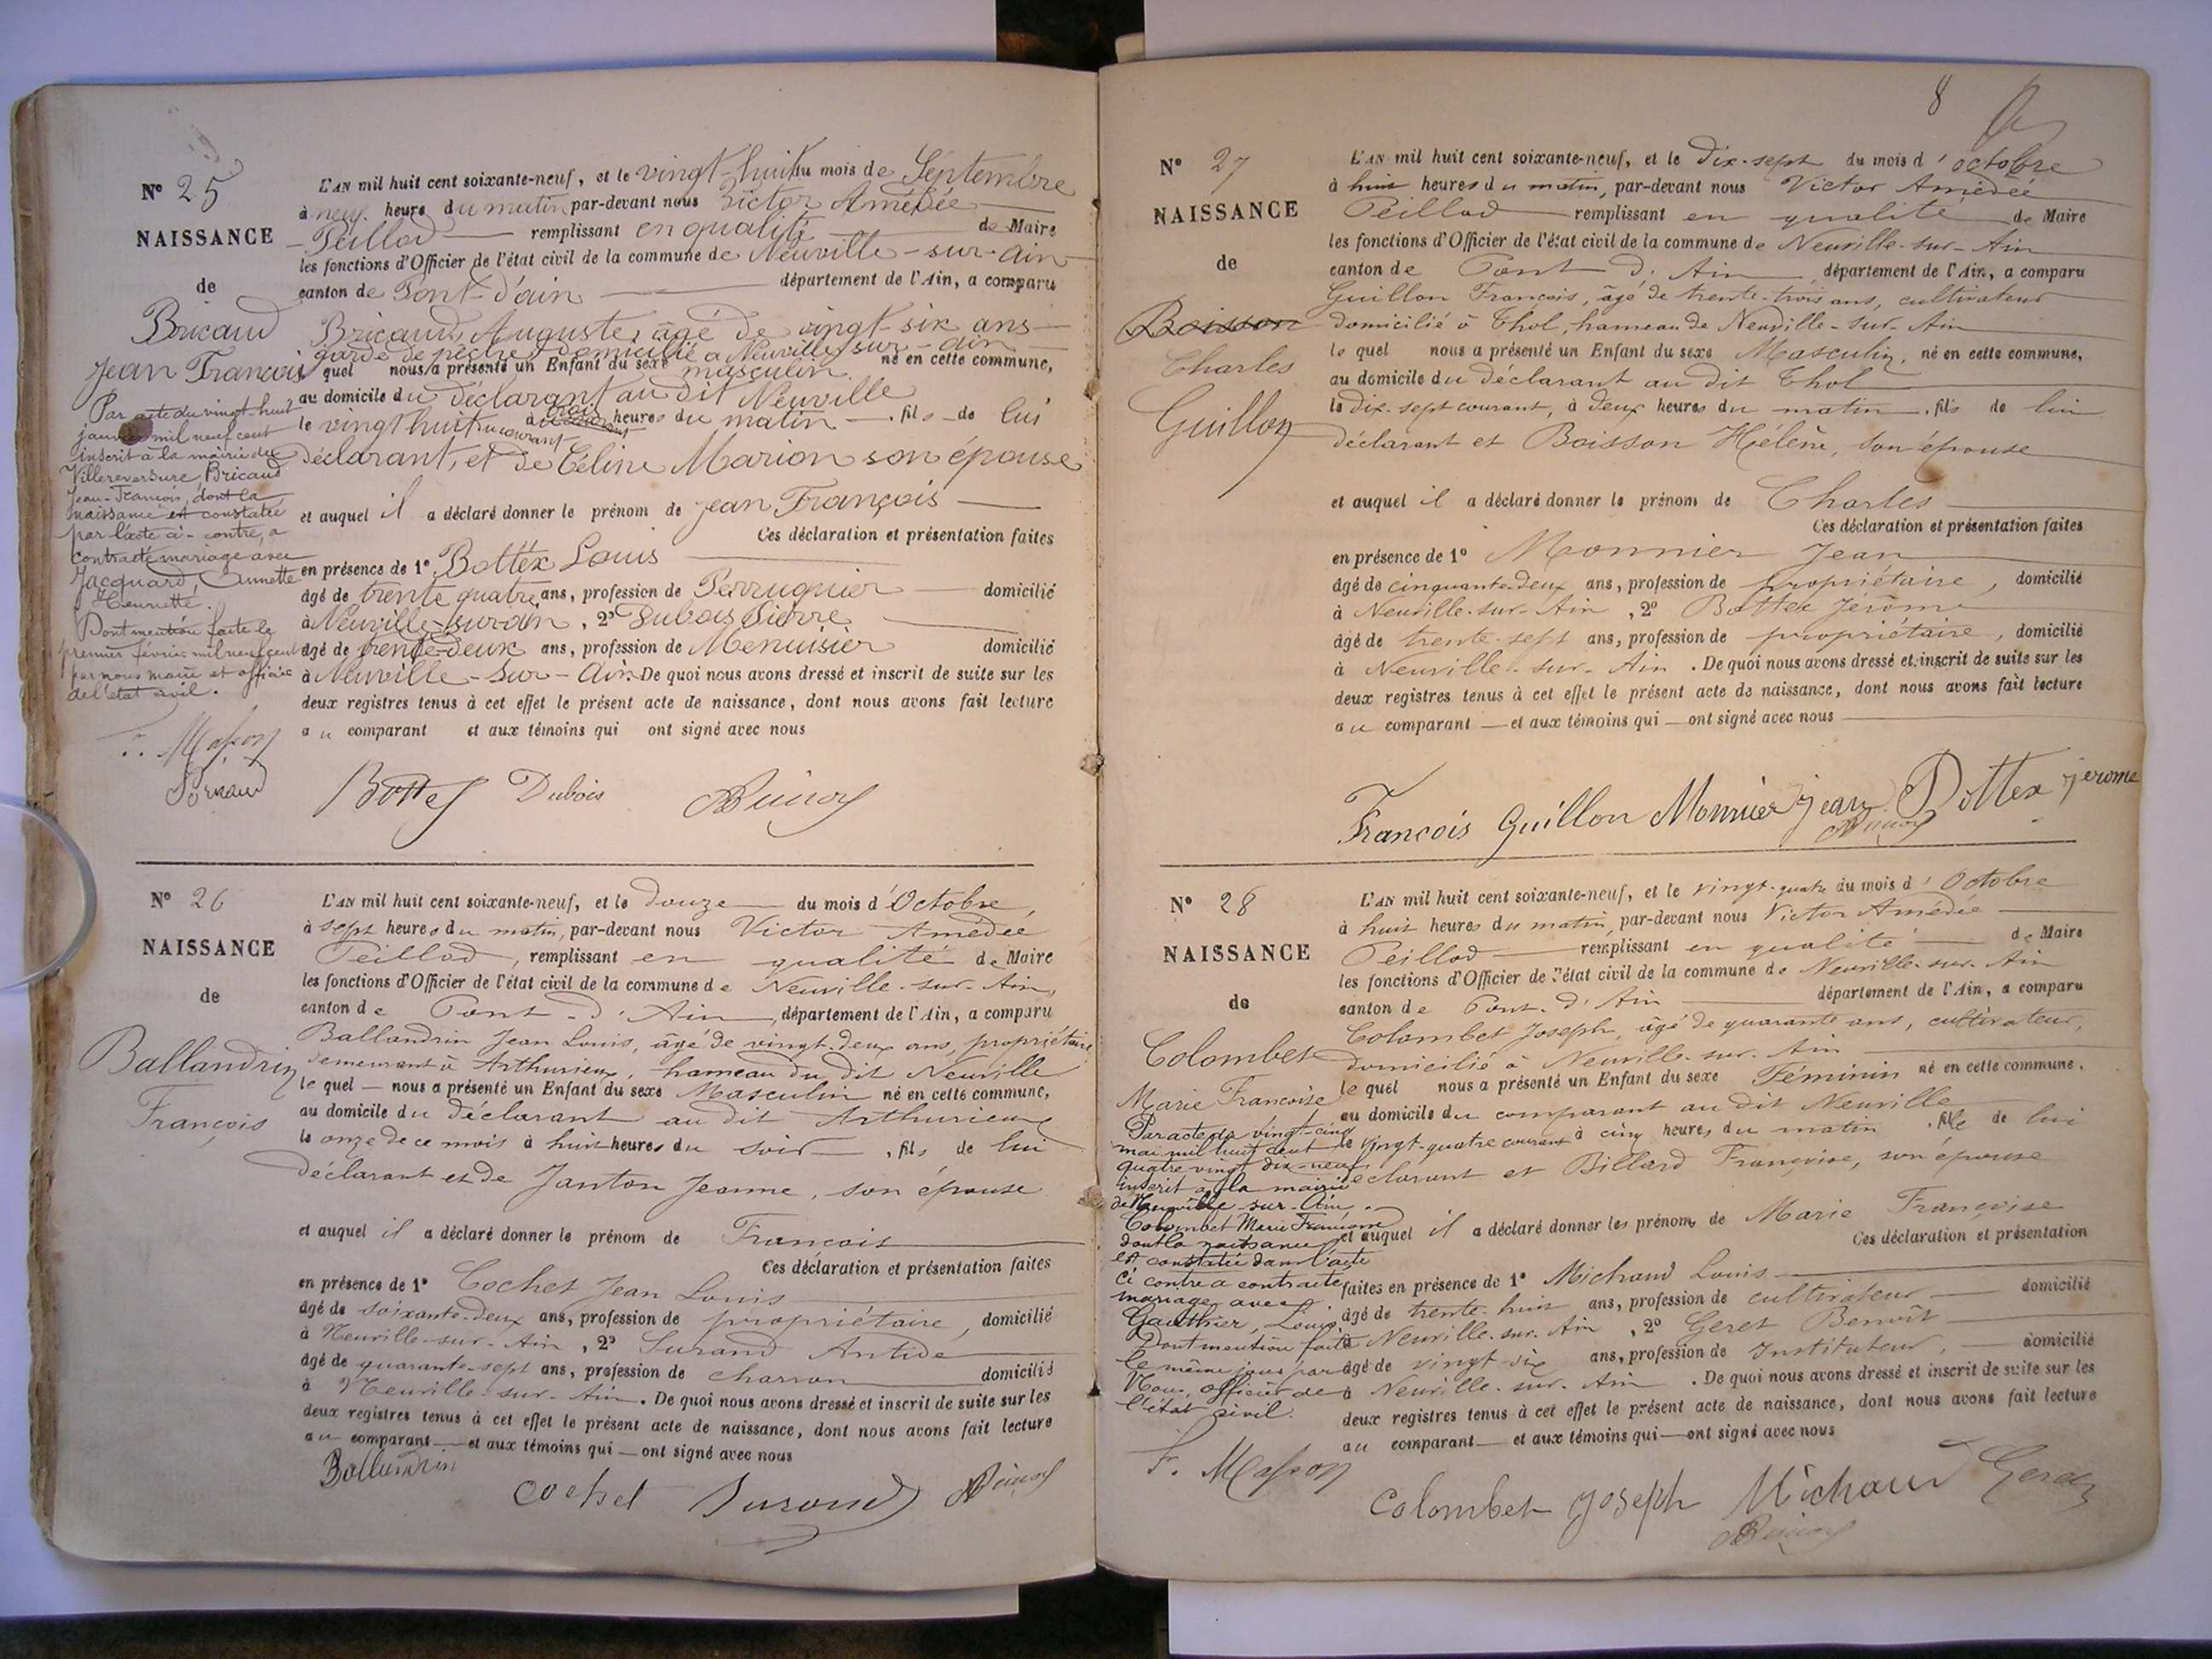 N° 25
NAISSANCE
de
Bricaud
Jean François
Par acte du vingt-huit
janvier mil neuf cent
inscrit à la mairie de
Villereversure, Bricaud
Jean-François, dont la
naissance est constatée
par l'acte ci-contre, a
contracté mariage avec
Jacquard, Annette
Henriette.
Dont mention faite le
premier février mil neuf cent
par nous maire et officier
de l'état civil.
L'AN mil huit cent soixante-neuf, et le vingt-huit du mois de Septembre
à neuf heures du matin par-devant nous Victor Amédée
Peillod remplissant en qualité de Maire
les fonctions d'Officier de l'état civil de la commune de Neuville-sur-Ain
canton de Pont-d'ain département de l'Ain, a comparu
Bricaud, Auguste, âgé de vingt-six ans
garde de pêche, domicilié à Neuville sur-ain
quel nous a présenté un Enfant du sexe masculin né en cette commune,
au domicile du déclarant au dit Neuville
le vingt huit du courant à trois heures du matin, fils de lui
déclarant, et de Céline Marion son épouse
et auquel il a déclaré donner le prénom de Jean François
Ces déclaration et présentation faites
en présence de 1° Bottex Louis
âgé de trente quatre ans, profession de Perruquier domicilié
à Neuville-sur-ain, 2° Dubois Pierre
âgé de trente-deux ans, profession de Menuisier domicilié
à Neuville-sur-Ain. De quoi nous avons dressé et inscrit de suite sur les
deux registres tenus à cet effet le présent acte de naissance, dont nous avons fait lecture
au comparant et aux témoins qui ont signé avec nous
Dubois
N° 26
NAISSANCE
de
Ballandrin
François
L'AN mil huit cent soixante-neuf, et le douze du mois d'Octobre,
à sept heures du matin, par-devant nous Victor Amédée
Peillod, remplissant en qualité de Maire
les fonctions d'Officier de l'état civil de la commune de Neuville-sur-Ain,
canton de Pont-d'Ain, département de l'Ain, a comparu
Ballandrin Jean Louis, âgé de vingt-deux ans, propriétaire
demeurant à Arthurieux, hameau du dit Neuville
le quel nous a présenté un Enfant du sexe Masculin né en cette commune,
au domicile du déclarant au dit Arthurieux
le onze de ce mois à huit heures du soir, fils de lui
déclarant et de Janton Jeanne, son épouse
et auquel il a déclaré donner le prénom de François
Ces déclaration et présentation faites
en présence de 1° Cochet Jean Louis
âgé de soixante-deux ans, profession de propriétaire, domicilié
à Neuville-sur-Ain, 2° Durand Antide
âgé de quarante-sept ans, profession de charron domicilié
à Neuville-sur-Ain. De quoi nous avons dressé et inscrit de suite sur les
deux registres tenus à cet effet le présent acte de naissance, dont nous avons fait lecture
au comparant et aux témoins qui ont signé avec nous
Ballandrin
Cochet Durand
8
N° 27
NAISSANCE
de
Boisson
Charles
Guillon
L'AN mil huit cent soixante-neuf, et le dix-sept du mois d'octobre
à huit heures du matin, par-devant nous Victor Amédée
Peillod remplissant en qualité de Maire
les fonctions d'Officier de l'état civil de la commune de Neuville-sur-Ain
canton de Pont d'Ain département de l'Ain, a comparu
Guillon François, âgé de trente-trois ans, cultivateur
domicilié à Thol, hameau de Neuville-sur-Ain
le quel nous a présenté un Enfant du sexe Masculin, né en cette commune,
au domicile du déclarant au dit Thol
le dix-sept courant, à deux heures du matin, fils de lui
déclarant et Boisson Hélène, son épouse
et auquel il a déclaré donner le prénom de Charles
Ces déclaration et présentation faites
en présence de 1° Monnier Jean
âgé de cinquante-deux ans, profession de propriétaire, domicilié
à Neuville-sur-Ain, 2° Bottex Jérôme
âgé de trente-sept ans, profession de propriétaire, domicilié
à Neuville-sur-Ain. De quoi nous avons dressé et inscrit de suite sur les
deux registres tenus à cet effet le présent acte de naissance, dont nous avons fait lecture
au comparant et aux témoins qui ont signé avec nous
François Guillon Monnier jean Bottex jerome
N° 28
NAISSANCE
de
Colombet
Marie Françoise
Par acte du vingt-cinq
mai mil huit cent
quatre vingt dix-neuf
inscrit à la mairie
de Neuville-sur-Ain,
Colombet Marie Françoise
dont la naissance
est constatée dans l'acte
ci contre a contracté
mariage avec
Gauthier, Louis.
Dont mention faite
le même jour par
Nous, officier de
l'état civil.
L'AN mil huit cent soixante-neuf, et le vingt-quatre du mois d'Octobre
à huit heures du matin, par-devant nous Victor Amédée
Peillod remplissant en qualité de Maire
les fonctions d'Officier de l'état civil de la commune de Neuville-sur-Ain
canton de Pont-d'Ain département de l'Ain, a comparu
Colombet Joseph, âgé de quarante ans, cultivateur,
domicilié à Neuville-sur-Ain
le quel nous a présenté un Enfant du sexe Féminin né en cette commune,
au domicile du comparant au dit Neuville
le vingt-quatre courant à cinq heures du matin, fille de lui
déclarant et Billard Françoise, son épouse
et auquel il a déclaré donner les prénoms de Marie Françoise
Ces déclaration et présentation
faites en présence de 1° Michaud Louis
âgé de trente-huit ans, profession de cultivateur domicilié
à Neuville-sur-Ain, 2° Geret Benoît
âgé de vingt-six ans, profession de Instituteur, domicilié
à Neuville-sur-Ain. De quoi nous avons dressé et inscrit de suite sur les
deux registres tenus à cet effet le présent acte de naissance, dont nous avons fait lecture
au comparant et aux témoins qui ont signé avec nous
Colombet joseph Michaud Geret